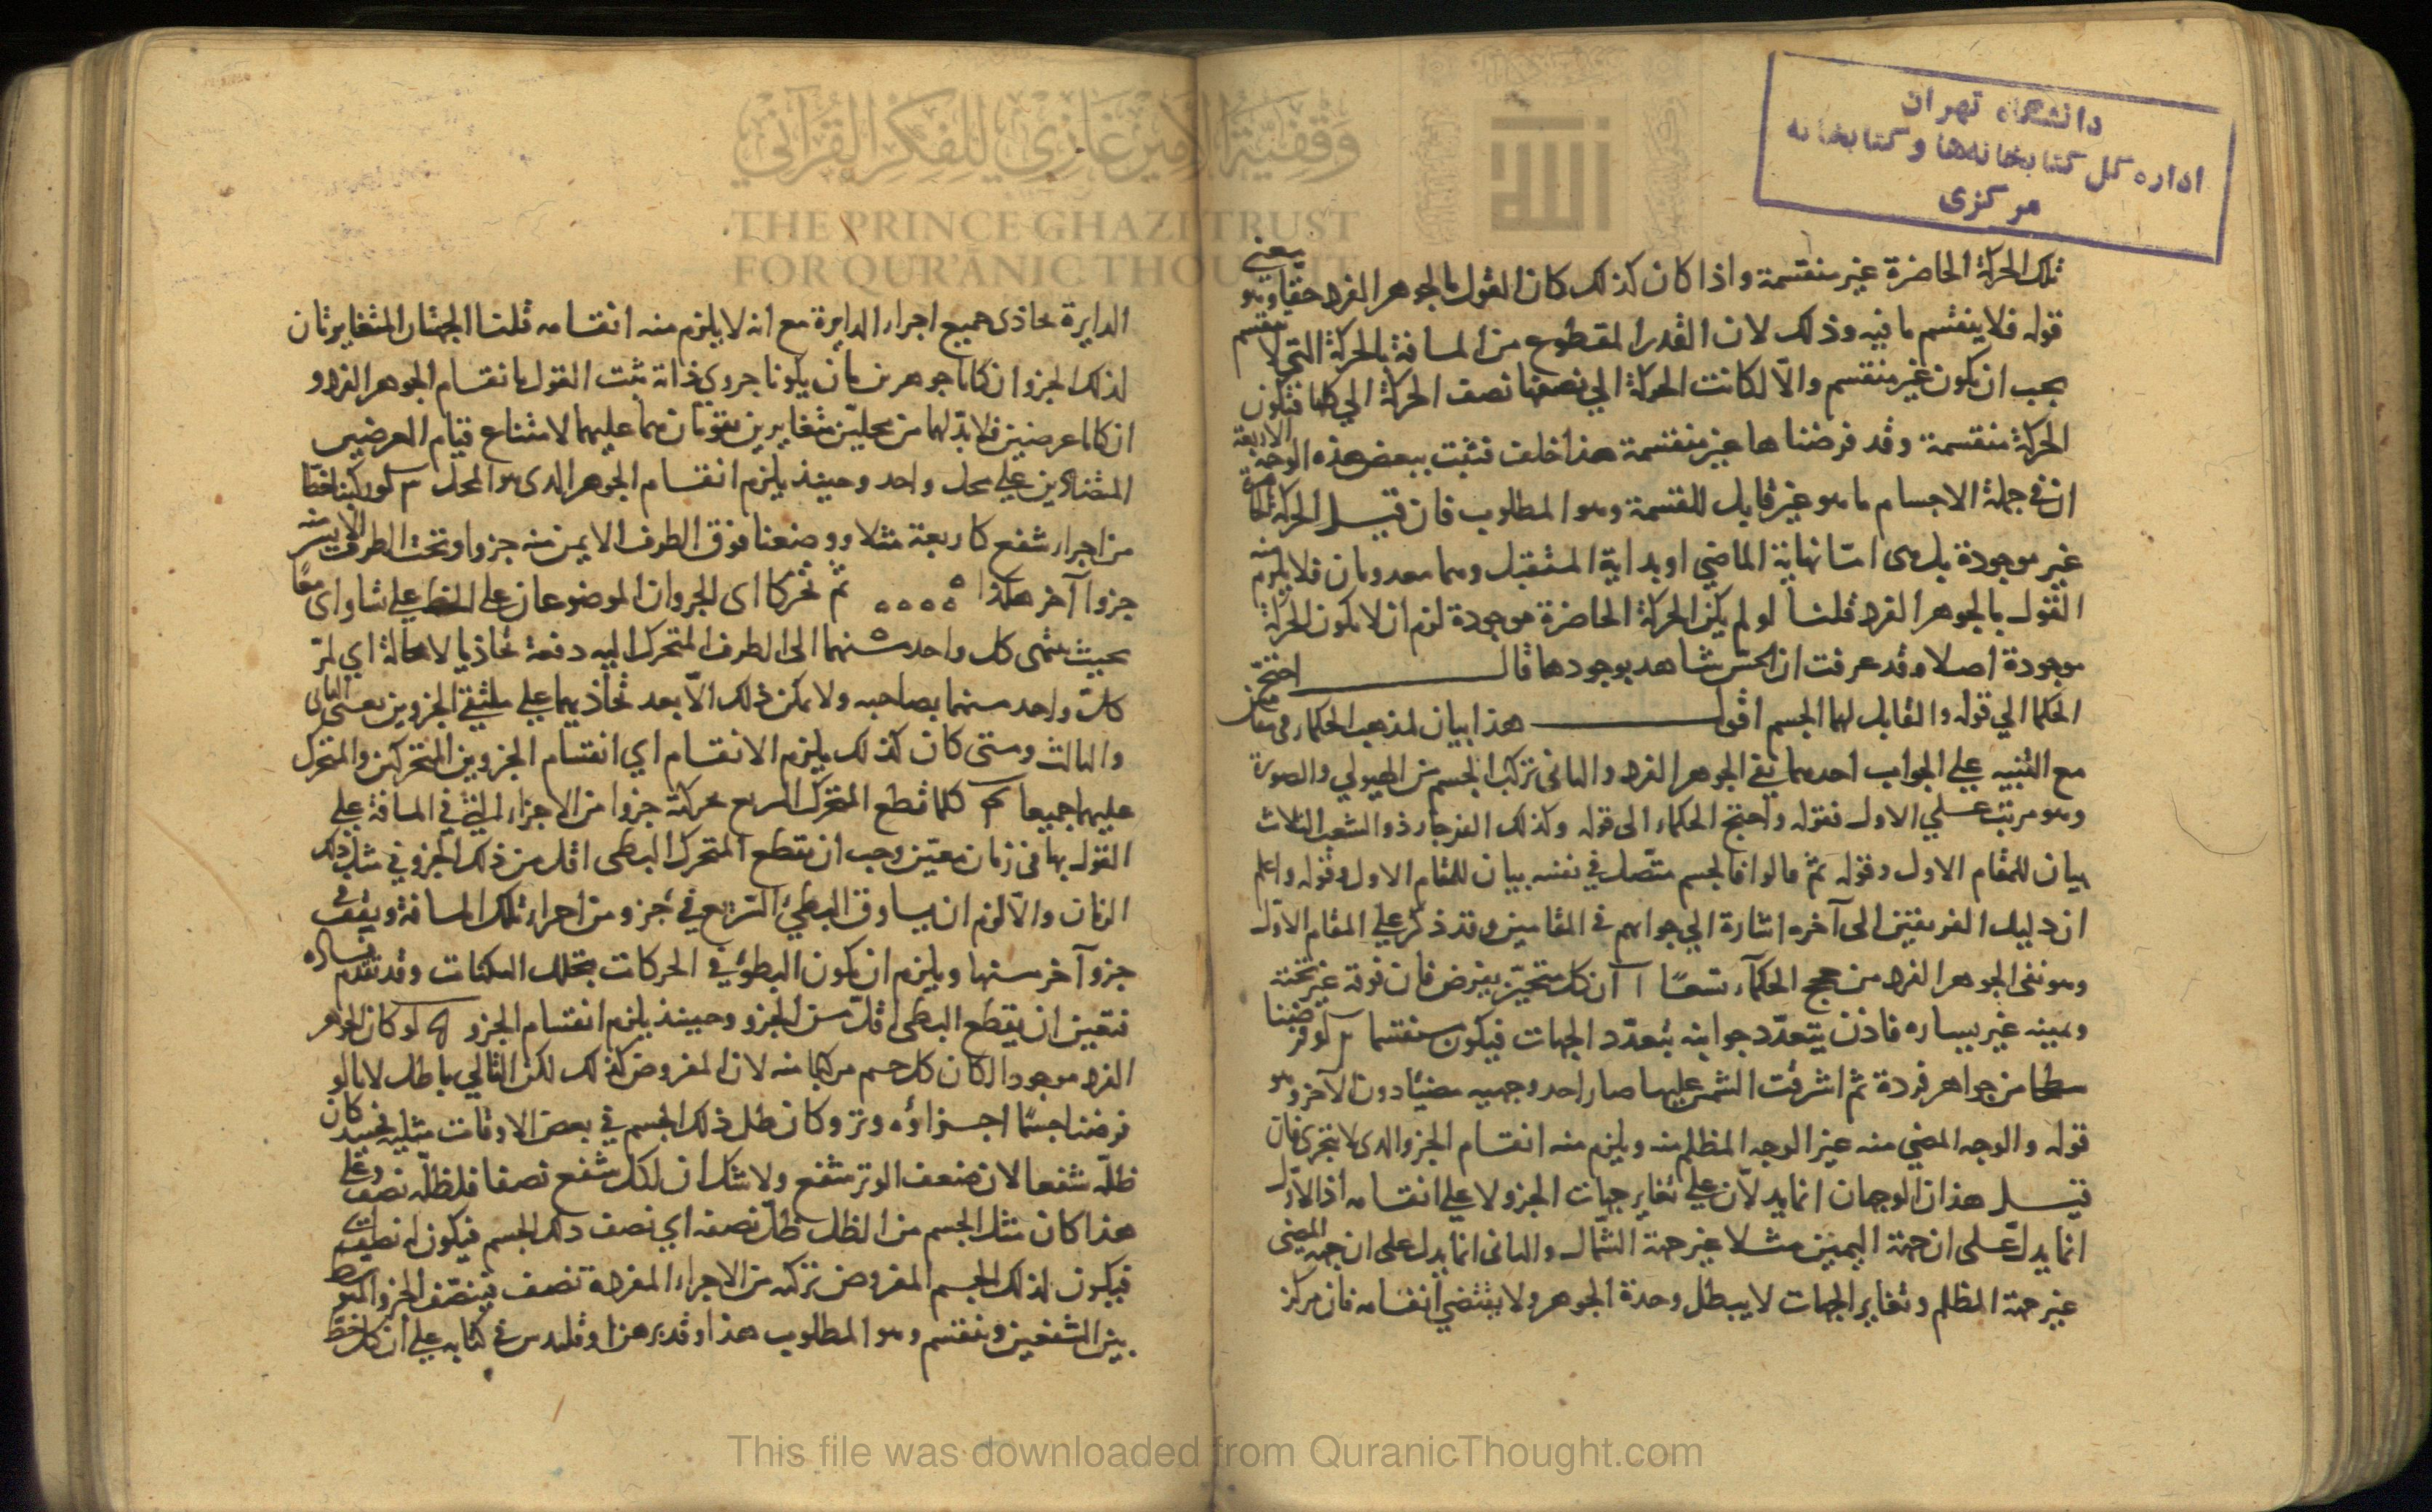 دانشگاه تهران
اداره كل كتابخانه‌ها و كتابخانه
مركزى
وقفية الأمير غازي للفكر القرآني
THE PRINCE GHAZI TRUST
FOR QUR'ĀNIC THOUGHT
تلك الحركة الحاضرة غير منقسمة واذا كان كذلك كان القول بالجوهر الفرد حقا وهو يعني
قوله فلا ينقسم ما فيه وذلك لان القدر المقطوع من المسافة بالحركة التي لا تنقسم
يجب ان يكون غير منقسم والّا لكانت الحركة الي نصفها نصف الحركة الي كلها فتكون
الحركة منقسمة وقد فرضنا ها غير منقسمة هذا خلف فثبت ببعض هذه الوجوه الاربعة
ان في جملة الاجسام ما هو غير قابل للقسمة وهو المطلوب فان قيل الحركة الحاضرة
غير موجودة بل هى امّا نهاية الماضي او بداية المستقبل وهما معدومان فلا يلزم منه
القول بالجوهر الفرد قلنا لو لم يكن الحركة الحاضرة موجودة لزم ان لا يكون الحركة
موجودة اصلا وقد عرفت ان الحسّ شاهد بوجودها قال احتج
الحكما الي قوله والقابل لهما الجسم اقول هذا بيان لمذهب الحكماء في مقامين
مع التنبيه علي الجواب احدهما نفي الجوهر الفرد والثانى تركب الجسم من الهيولي والصورة
وهو مرتب علي الاول فقوله واحتج الحكماء الى قوله وكذلك الفرجار ذو الشعب الثلاث
بيان للمقام الاول وقوله ثم قالوا فالجسم متّصل في نفسه بيان للمقام الاول وقوله واعلم
ان دليل الفريقين الى آخره اشارة الي جوابهم في المقامين وقد ذكر علي المقام الاول
وهو نفى الجوهر الفرد من حجج الحكمآء تسعًا آ ان كل متحيّز يفرض فان فوقه غير تحته
ويمينه غير يساره فاذن يتعدّد جوانبه بتعدّد الجهات فيكون منقسما ب لو فرضنا
سطحا من جواهر فردة ثم اشرقت الشمس عليها صار احد وجهيه مضيئا دون الآخر وهو
قوله والوجه المضي منه غير الوجه المظلم منه ويلزم منه انقسام الجزو الدى لا يتجزى فان
قيل هذان الوجهان انما يدلّان علي تغاير جهات الجزو لا علي انقسامه اذ الاوّل
انما يدلّ على ان جهة اليمين مثلا غير جهة الشمال والثانى انما يدل على ان جهة المضى
غير جهة المظلم وتغاير الجهات لا يبطل وحدة الجوهر ولا يقتضي انقسامه فان مركز
الدايرة تحاذى جميع اجزاء الدايرة مع انه لا يلزم منه انقسامه قلنا الجهتان المتغايرتان
لذلك الجزو ان كانا جوهرين بان يكونا جزوي ذاته ثبت القول بانقسام الجوهر الفرد و
ان كانا عرضين فلا بدّ لهما من محلّين متغايرين يقومان بهما عليهما لامتناع قيام العرضين
المتنافيين علي محل واحد وحينئذ يلزم انقسام الجوهر الدى هو المحل ج لو ركبنا خطا
من اجزاء شفع كاربعة مثلا ووضعنا فوق الطرف الايمن منه جزوا وتحت الطرف الايسر منه
جزوا آخر هكذا ثم تحركا اى الجزوان الموضوعان على الخط علي تساواى معًا
بحيث ينتهى كل واحد منهما الى الطرف المتحرك اليه دفعة تحاذيا لا محالة اي لمرّ
كلّ واحد منهما بصاحبه ولا يمكن ذلك الّا بعد تحاذيهما علي ملتقي الجزوين يعنى الثانى
والثالث ومتى كان كذلك يلزم الانقسام اي انقسام الجزوين المتحركين والمتحرك
عليهما جميعا د كلما قطع المتحرك السريع بحركته جزوا من الاجزاء التي في المسافة علي
القول بها فى زمان معيّن وجب ان يقطع المتحرك البطى اقل من ذلك الجزو في مثل ذلك
الزمان والّا لزم ان يساوق البطيّ السّريع في جزو من اجزاء تلك المسافة ويقف في
جزو آخر منها ويلزم ان يكون البطؤ في الحركات بتخلل السكنات وقد تقدم فساده
فتعين ان يقطع البطى اقلّ من الجزو وحينئذ يلزم انقسام الجزو ه لو كان الجوهر
الفرد موجودا لكان كل جسم مركبا منه لان المفروض كذلك لكن التالي باطل لانا لو
فرضنا جسمًا اجزاؤه وتر وكان ظل ذلك الجسم في بعض الاوقات مثليه فحينئذ كان
ظلّه شفعا لان ضعف الوتر شفع ولا شك ان لكل شفع نصفا فلظلّه نصف وعلى
هذا كان مثل الجسم من الظل ظلّ نصفه اي نصف ذلك الجسم فيكون له نصف
فيكون لذلك الجسم المفروض تركبه من الاجزاء المفردة نصف فينتصف الجزو المتوسط
بين الشفعين وينقسم وهو المطلوب هذا وقد برهن اوقليدس في كتابه علي ان كل خط
This file was downloaded from QuranicThought.com